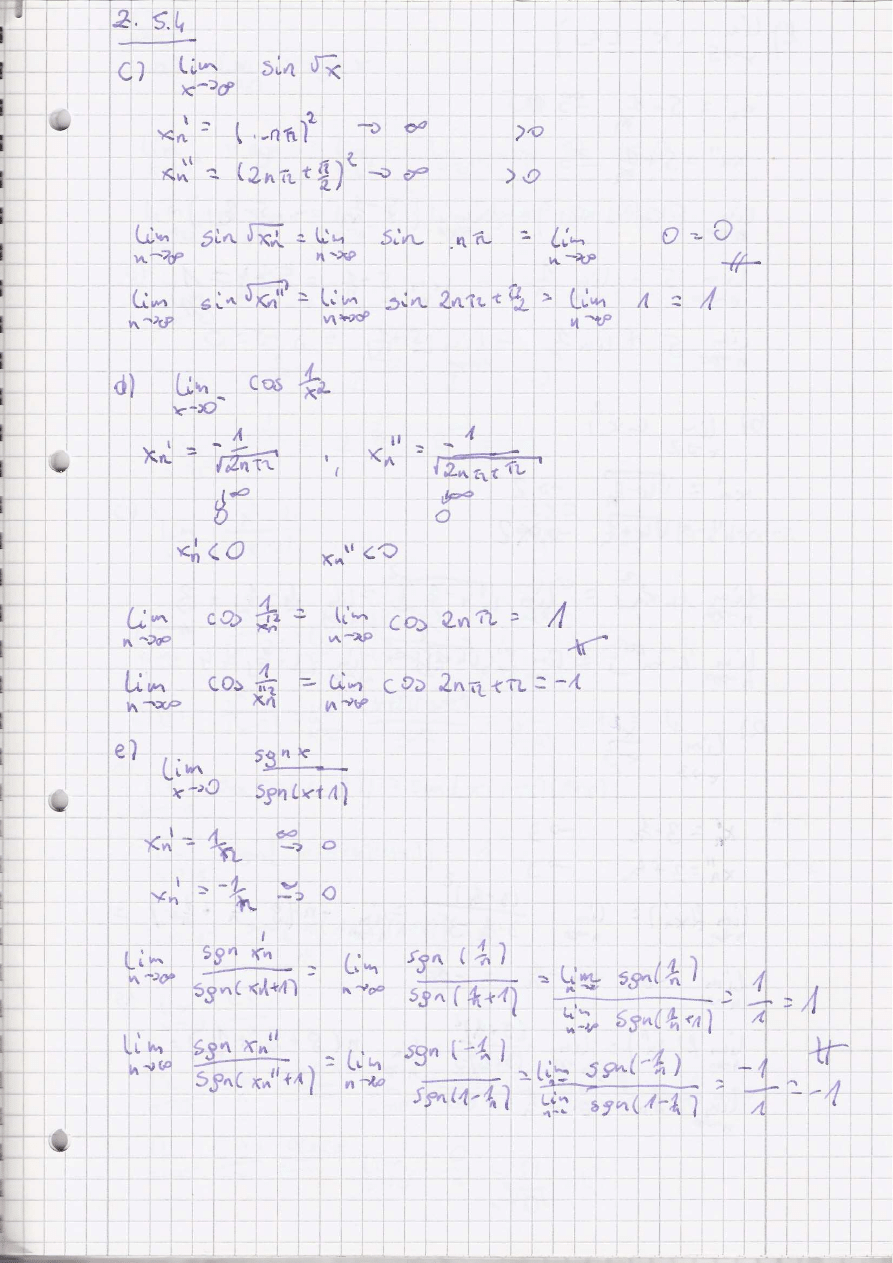 2. 5.4
c) lim x→∞ sin √x
xn' = ( nπ)² → ∞ >0
xn'' = (2nπ + π/2)² → ∞ >0
lim n→∞ sin √xn' = lim n→∞ sin nπ = lim n→∞ 0 = 0
≠
lim n→∞ sin √xn'' = lim n→∞ sin 2nπ + π/2 = lim n→∞ 1 = 1
d) lim x→0- cos 1/x²
xn' = -1/√2nπ , xn'' = -1/√2nπ+π
↓∞ ↓∞
0 0
xn' < 0 xn'' < 0
lim n→∞ cos 1/xn'² = lim n→∞ cos 2nπ = 1
≠
lim n→∞ cos 1/xn''² = lim n→∞ cos 2nπ + π = -1
e) lim x→0 sgn x / sgn(x+1)
xn' = 1/n ∞→ 0
xn' = -1/n ∞→ 0
lim n→∞ sgn xn' / sgn(xn'+1) = lim n→∞ sgn(1/n) / sgn(1/n+1) = lim n→∞ sgn(1/n) / lim n→∞ sgn(1/n+1) = 1/1 = 1
≠
lim n→∞ sgn xn'' / sgn(xn''+1) = lim n→∞ sgn(-1/n) / sgn(1-1/n) = lim n→∞ sgn(-1/n) / lim n→∞ sgn(1-1/n) = -1/1 = -1